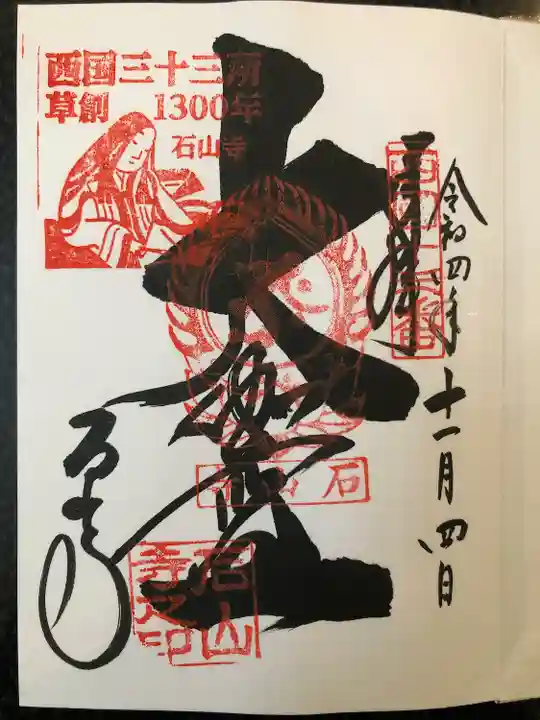 西国三十三所
草創 1300年
石山寺
奉拝
令和四年十一月四日
大悲殿
石山寺
石山寺
石山寺之印